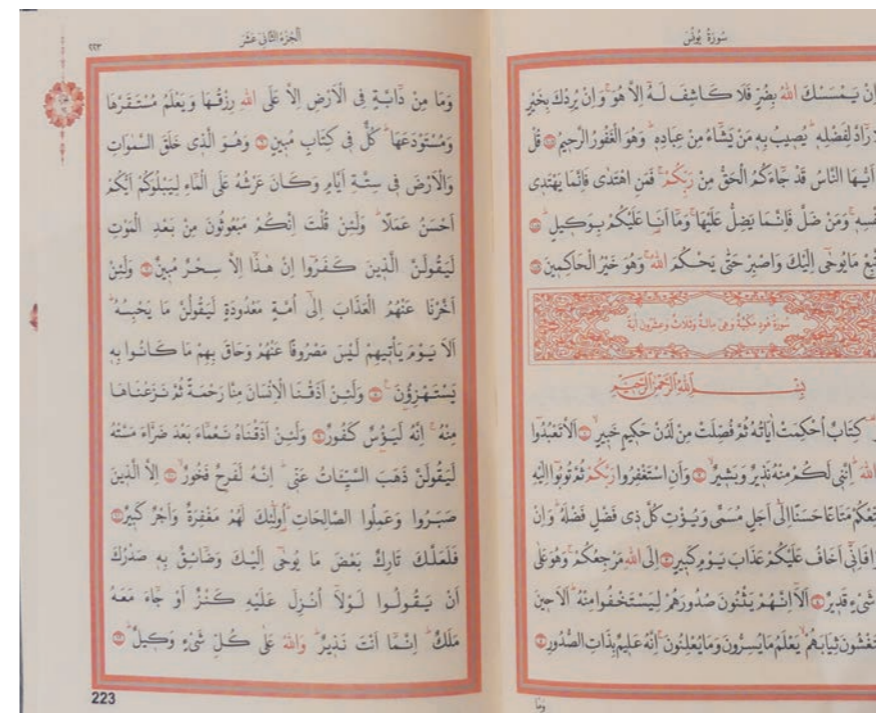 سُورَةُ يُونُسَ
اِنْ يَمْسَسْكَ اللّٰهُ بِضُرٍّ فَلَا كَاشِفَ لَهُٓ اِلَّا هُوَۚ وَاِنْ يُرِدْكَ بِخَيْرٍ
رَٓادَّ لِفَضْلِهٖۜ يُصٖيبُ بِهٖ مَنْ يَشَٓاءُ مِنْ عِبَادِهٖۜ وَهُوَ الْغَفُورُ الرَّحٖيمُ قُلْ
اَيُّهَا النَّاسُ قَدْ جَٓاءَكُمُ الْحَقُّ مِنْ رَبِّكُمْۚ فَمَنِ اهْتَدٰى فَاِنَّمَا يَهْتَدٖى
وَمَنْ ضَلَّ فَاِنَّمَا يَضِلُّ عَلَيْهَاۚ وَمَٓا اَنَا۬ عَلَيْكُمْ بِوَكٖيلٍۜ
مَا يُوحٰٓى اِلَيْكَ وَاصْبِرْ حَتّٰى يَحْكُمَ اللّٰهُۚ وَهُوَ خَيْرُ الْحَاكِمٖينَ
سُورَةُ هُودٍ مَكِّيَّةٌ وَهِيَ مِائَةٌ وَثَلَاثٌ وَعِشْرُونَ اٰيَةً
بِسْمِ اللّٰهِ الرَّحْمٰنِ الرَّحٖيمِ
كِتَابٌ اُحْكِمَتْ اٰيَاتُهُ ثُمَّ فُصِّلَتْ مِنْ لَدُنْ حَكٖيمٍ خَبٖيرٍۙ اَلَّا تَعْبُدُٓوا
اللّٰهَۜ اِنَّنٖى لَكُمْ مِنْهُ نَذٖيرٌ وَبَشٖيرٌۙ وَاَنِ اسْتَغْفِرُوا رَبَّكُمْ ثُمَّ تُوبُٓوا اِلَيْهِ
مَتَاعًا حَسَنًا اِلٰٓى اَجَلٍ مُسَمًّى وَيُؤْتِ كُلَّ ذٖى فَضْلٍ فَضْلَهُۜ وَاِنْ
فَاِنّٖٓى اَخَافُ عَلَيْكُمْ عَذَابَ يَوْمٍ كَبٖيرٍ اِلَى اللّٰهِ مَرْجِعُكُمْۚ وَهُوَ عَلٰى
شَىْءٍ قَدٖيرٌ اَلَٓا اِنَّهُمْ يَثْنُونَ صُدُورَهُمْ لِيَسْتَخْفُوا مِنْهُۜ اَلَا حٖينَ
ثِيَابَهُمْۙ يَعْلَمُ مَا يُسِرُّونَ وَمَا يُعْلِنُونَۚ اِنَّهُ عَلٖيمٌ بِذَاتِ الصُّدُورِ
وَمَا
اَلْجُزْءُ الثَّانٖى عَشَرَ
٢٢٣
وَمَا مِنْ دَٓابَّةٍ فِى الْاَرْضِ اِلَّا عَلَى اللّٰهِ رِزْقُهَا وَيَعْلَمُ مُسْتَقَرَّهَا
وَمُسْتَوْدَعَهَاۜ كُلٌّ فٖى كِتَابٍ مُبٖينٍ وَهُوَ الَّذٖى خَلَقَ السَّمٰوَاتِ
وَالْاَرْضَ فٖى سِتَّةِ اَيَّامٍ وَكَانَ عَرْشُهُ عَلَى الْمَٓاءِ لِيَبْلُوَكُمْ اَيُّكُمْ
اَحْسَنُ عَمَلًاۜ وَلَئِنْ قُلْتَ اِنَّكُمْ مَبْعُوثُونَ مِنْ بَعْدِ الْمَوْتِ
لَيَقُولَنَّ الَّذٖينَ كَفَرُٓوا اِنْ هٰذَٓا اِلَّا سِحْرٌ مُبٖينٌ وَلَئِنْ
اَخَّرْنَا عَنْهُمُ الْعَذَابَ اِلٰٓى اُمَّةٍ مَعْدُودَةٍ لَيَقُولُنَّ مَا يَحْبِسُهُۜ
اَلَا يَوْمَ يَأْتٖيهِمْ لَيْسَ مَصْرُوفًا عَنْهُمْ وَحَاقَ بِهِمْ مَا كَانُوا بِهٖ
يَسْتَهْزِؤُ۫نَۜ وَلَئِنْ اَذَقْنَا الْاِنْسَانَ مِنَّا رَحْمَةً ثُمَّ نَزَعْنَاهَا
مِنْهُۚ اِنَّهُ لَيَؤُ۫سٌ كَفُورٌ وَلَئِنْ اَذَقْنَاهُ نَعْمَٓاءَ بَعْدَ ضَرَّٓاءَ مَسَّتْهُ
لَيَقُولَنَّ ذَهَبَ السَّيِّـَٔاتُ عَنّٖىۜ اِنَّهُ لَفَرِحٌ فَخُورٌۙ اِلَّا الَّذٖينَ
صَبَرُوا وَعَمِلُوا الصَّالِحَاتِۜ اُو۬لٰٓئِكَ لَهُمْ مَغْفِرَةٌ وَاَجْرٌ كَبٖيرٌ
فَلَعَلَّكَ تَارِكٌ بَعْضَ مَا يُوحٰٓى اِلَيْكَ وَضَٓائِقٌ بِهٖ صَدْرُكَ
اَنْ يَقُولُوا لَوْلَٓا اُنْزِلَ عَلَيْهِ كَنْزٌ اَوْ جَٓاءَ مَعَهُ
مَلَكٌۜ اِنَّمَٓا اَنْتَ نَذٖيرٌۜ وَاللّٰهُ عَلٰى كُلِّ شَىْءٍ وَكٖيلٌۜ
223